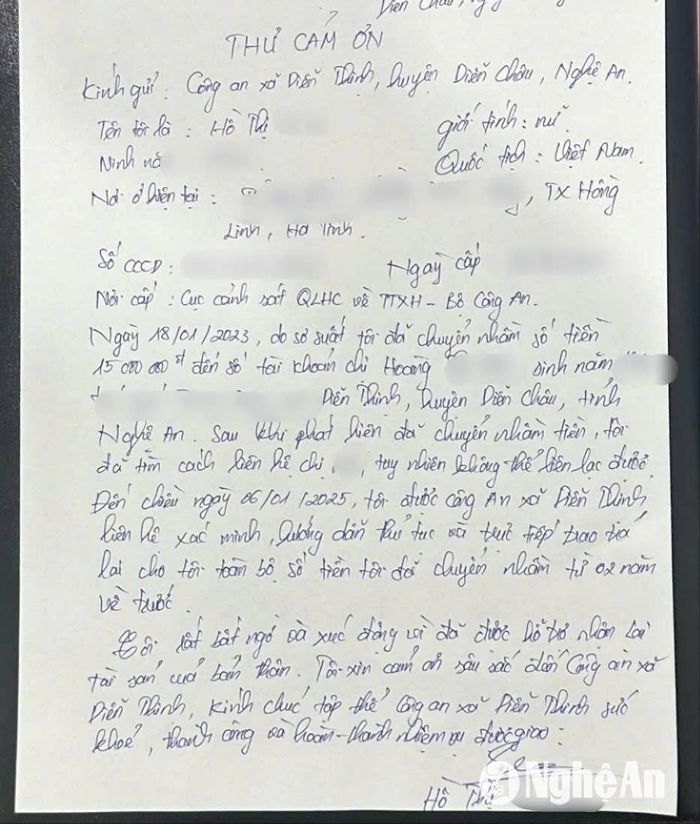 Diễn Châu, ng
THƯ CẢM ƠN
Kính gửi: Công an xã Diễn Thịnh, huyện Diễn Châu, Nghệ An.
Tên tôi là : Hồ Thị
giới tính: nữ.
Quốc tịch: Việt Nam.
Nơi ở hiện tại :
, TX Hồng
Lĩnh, Hà Tĩnh.
Số CCCD:
Ngày cấp
Nơi cấp : Cục cảnh sát QLHC về TTXH - Bộ Công An.
Ngày 18/01/2023, do sơ suất tôi đã chuyển nhầm số tiền
15 000 000 đ đến số tài khoản chị Hoàng sinh năm
Diễn Thịnh, huyện Diễn Châu, tỉnh
Nghệ An. Sau khi phát hiện đã chuyển nhầm tiền, tôi
đã tìm cách liên hệ chị , tuy nhiên không thể liên lạc được.
Đến chiều ngày 06/01/2025, tôi được công An xã Diễn Thịnh
liên hệ xác minh, hướng dẫn thủ tục và trực tiếp trao trả
lại cho tôi toàn bộ số tiền tôi đã chuyển nhầm từ 02 năm
về trước.
Tôi rất bất ngờ và xúc động vì đã được hỗ trợ nhận lại
tài sản của bản thân. Tôi xin cảm ơn sâu sắc đến Công an xã
Diễn Thịnh, kính chúc tập thể Công an xã Diễn Thịnh sức
khoẻ, thành công và hoàn thành nhiệm vụ được giao.
Hồ Thị
Nghệ An